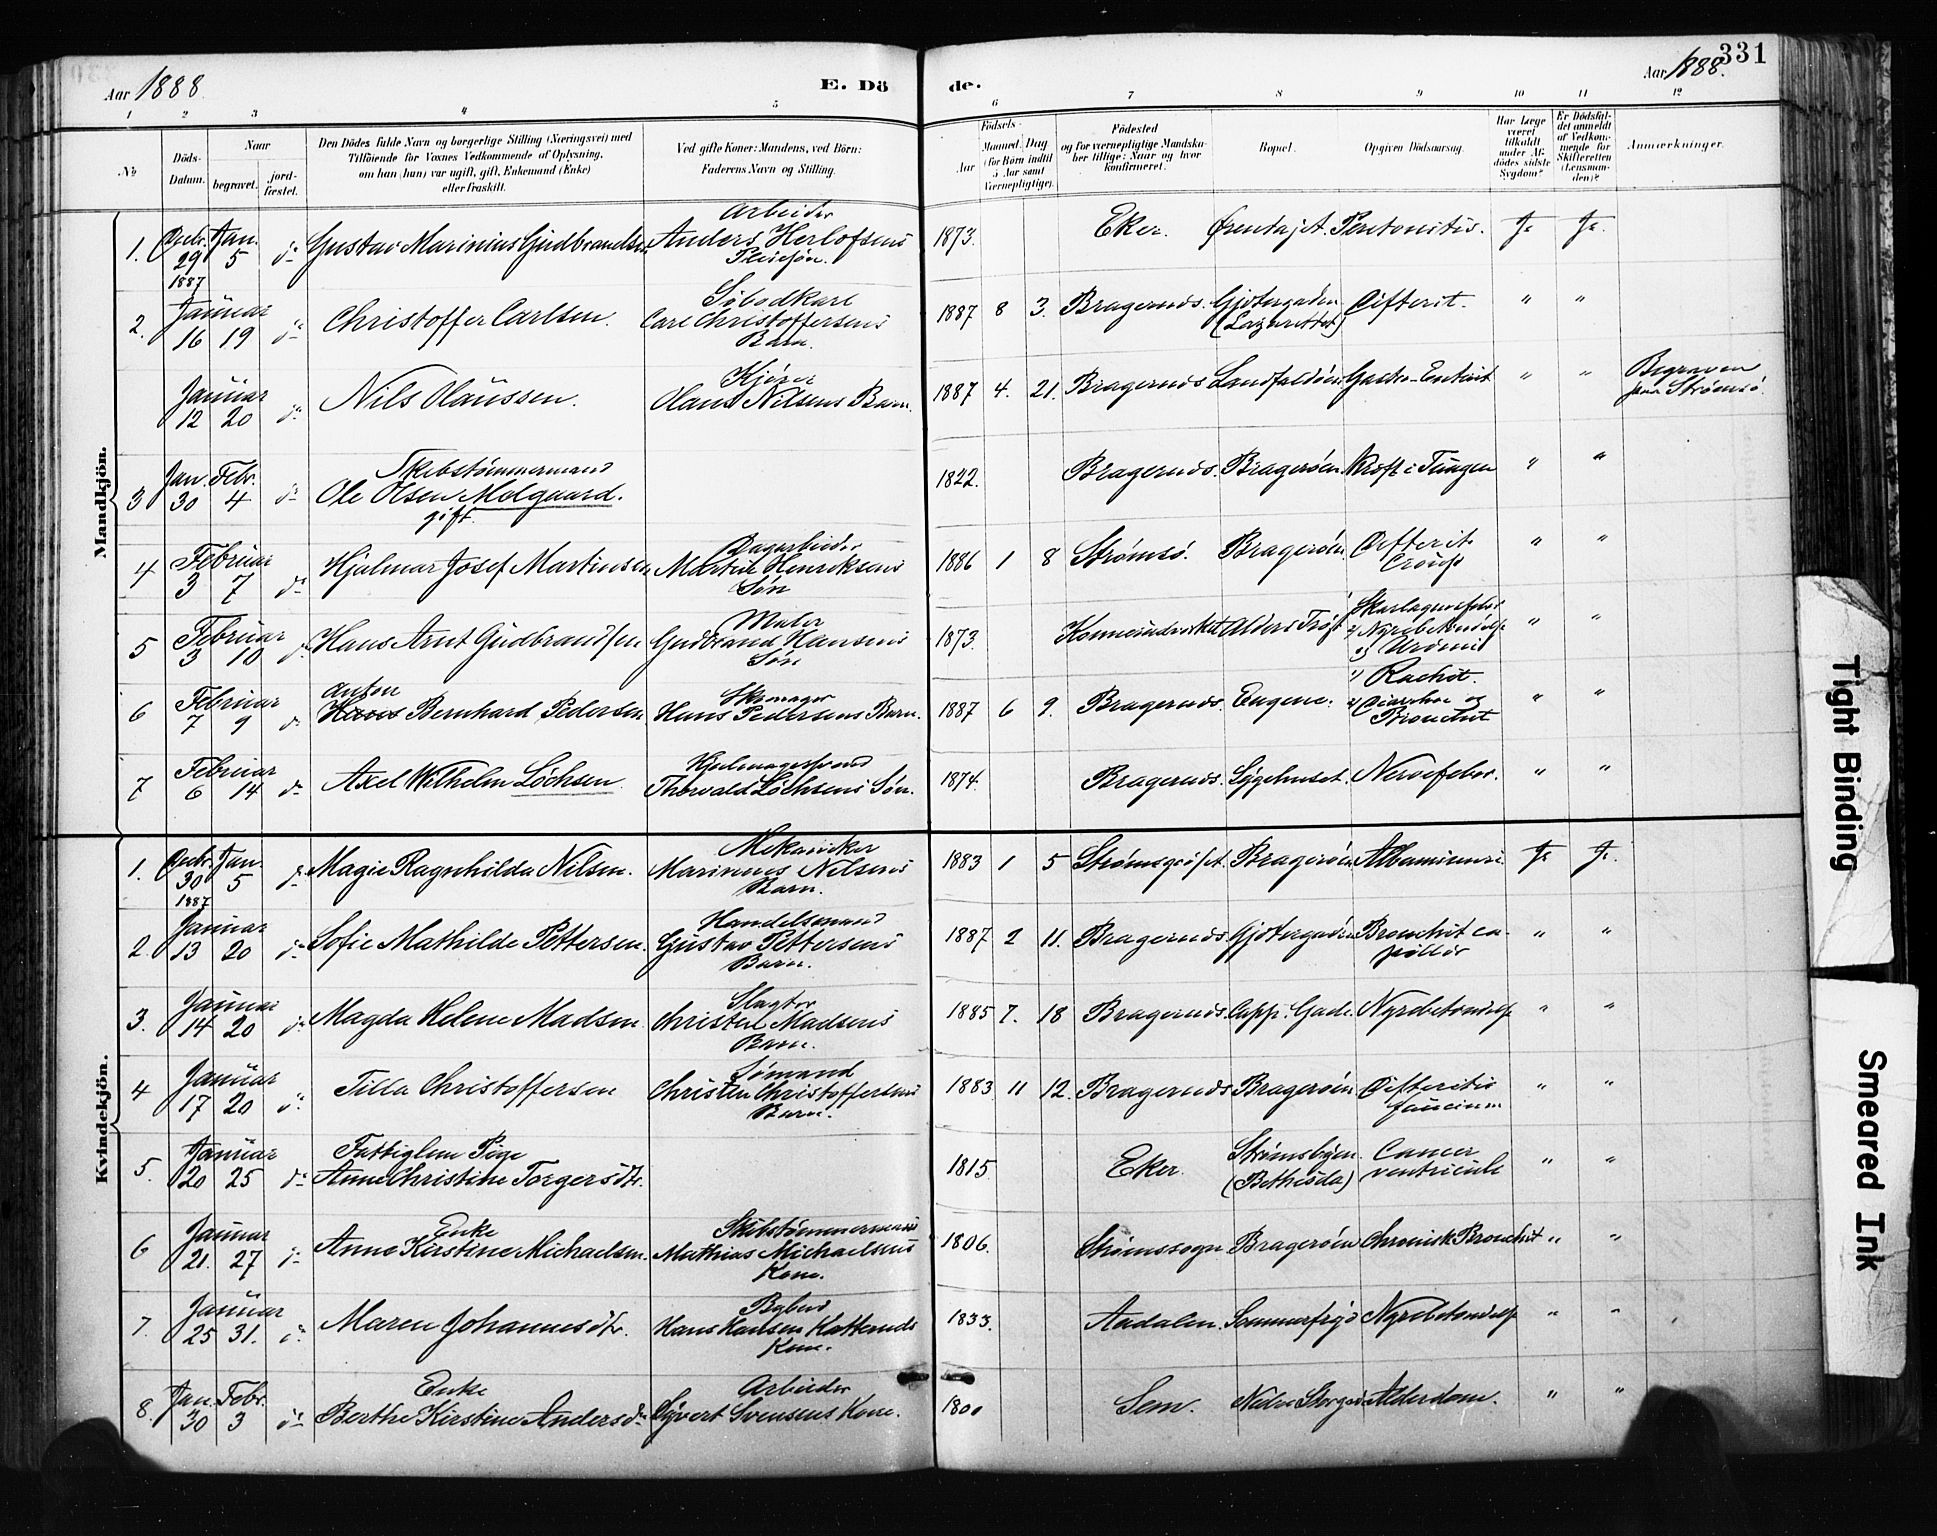 331
Aar 1888.
E. Dö
de.
Aar 1888.
1 2 3 4 5 6 7 8 9 10 11 12
No
Döds-Datum.
Naar
begravet.
jord-fæstet.
Den Dödes fulde Navn og borgerlige Stilling (Næringsvei) med
Tilföiende for Voxnes Vedkommende af Oplysning,
om han (hun) var ugift, gift, Enkemand (Enke)
eller fraskilt.
Ved gifte Koner: Mandens, ved Börn:
Faderens Navn og Stilling.
Födsels-
Aar
Maaned, Dag
(for Börn indtil
5 Aar samt
Værnepligtige).
Födested
og for værnepligtige Mandska-
ber tillige: Naar og hvor
konfirmeret.
Bopæl.
Opgiven Dödsaarsag.
Har Læge
været
tilkaldt
under Af-
dödes sidste
Sygdom?
Er Dödsfal-
det anmeldt
af Vedkom-
mende for
Skifteretten
(Lensman-
den)?
Anmærkninger.
Mandkjön.
1. Decbr. 29 1887 Jan. 5 do Gustav Marinius Gudbrandsen Arbeider Anders Herlofsens Pleiesøn. 1873. Eker. Ørentajet. Peritonitis. Ja Ja.
2. Januar 16 19 do Christoffer Carlsen. Carl Christoffersens Barn. 1887 8 3. Bragernæs. Gjetergaden (Lazarettet) Difterit. " "
Januar 12 20 do Nils Olaussen. Olaus Nilsens Barn. 1887 4. 21. Bragernæs Landfaldøen Gastro-Enterit " " Begraven paa Strømsö.
3 Jan. 30 Febr. 4 do Skibstømmermand Ole Olsen Molgaard. gift. 1822. Bragernæs. Bragerøen. Kræft i Tungen " "
4 Februar 3 7 do Hjalmar Josef Martinsen Dagarbeider Martin Henriksens Søn 1886 1 8 Strømsø. Bragerøen Difterit. Croup " "
5 Februar 3 10 do Hans Arnt Gudbrandsen Maler Gudbrand Hansens Søn 1873. Alders Trøst 1) Skarlagensfeber 2) Nyrebetændelse 3) Urämi " "
6 Februar 7 9 do Anton Hans Bernhard Pedersen Skomager Hans Pedersens Barn. 1887 6 9. Bragernæs. Eugene. 1) Rachit. 2) Diarrhoe og Bronchit " "
7 Februar 6 14 do Axel Wilhelm Löchsen. Thorvald Löchsens Søn. 1874. Bragernæs. Sygehuset. Nervefeber. " "
Kvindekjön.
1. Decbr. 30 1887 Jan. 5 do Magie Ragnhilda Nilsen. Mekaniker Marinius Nilsens Barn. 1883 1 5 Strømsgodset. Bragerøen Albuminuri Ja Ja.
2. Januar 13 20 do Sofie Mathilde Pettersen. Handelsmand Gustav Pettersens Barn. 1887 2 11. Bragernæs Gjetergaden Bronchit ca-pillær " "
3. Januar 14 20 do Magda Helene Madsen Slagter Christen Madsens Barn. 1885 7. 18 Bragernæs. Capp. Gade. Nyrebetændelse " "
4 Januar 17 20 do Tilla Christoffersen Sømand Christen Christoffersens Barn. 1883 11 12. Bragernæs Bragerøen Difteritis faucium " "
5. Januar 20 25 do Fattiglem Pige Anne Christine Torgersdtr. 1815. Eker. Strømsbyen. (Bethesda) Cancer ventriculi " "
6 Januar 21. 27 do Enke Anne Kirstine Michaelsen. Skibstømmermand Mathias Michaelsens Kone. 1806. Strømssogn Bragerøen Chronisk Bronchit " "
7. Januar 25 31. do Maren Johannesdtr. Bybud Hans Hansen Katteruds Kone. 1833. Aadalen. Sommerfryd Nyrebetændelse " "
8. Jan. 30 Febr. 3 do Enke Berthe Kirstine Andersdtr Arbeider Syvert Svensens Kone. 1800 Sem. Nedre Storgade Alderdom. " "
Tight Binding
Smeared Ink